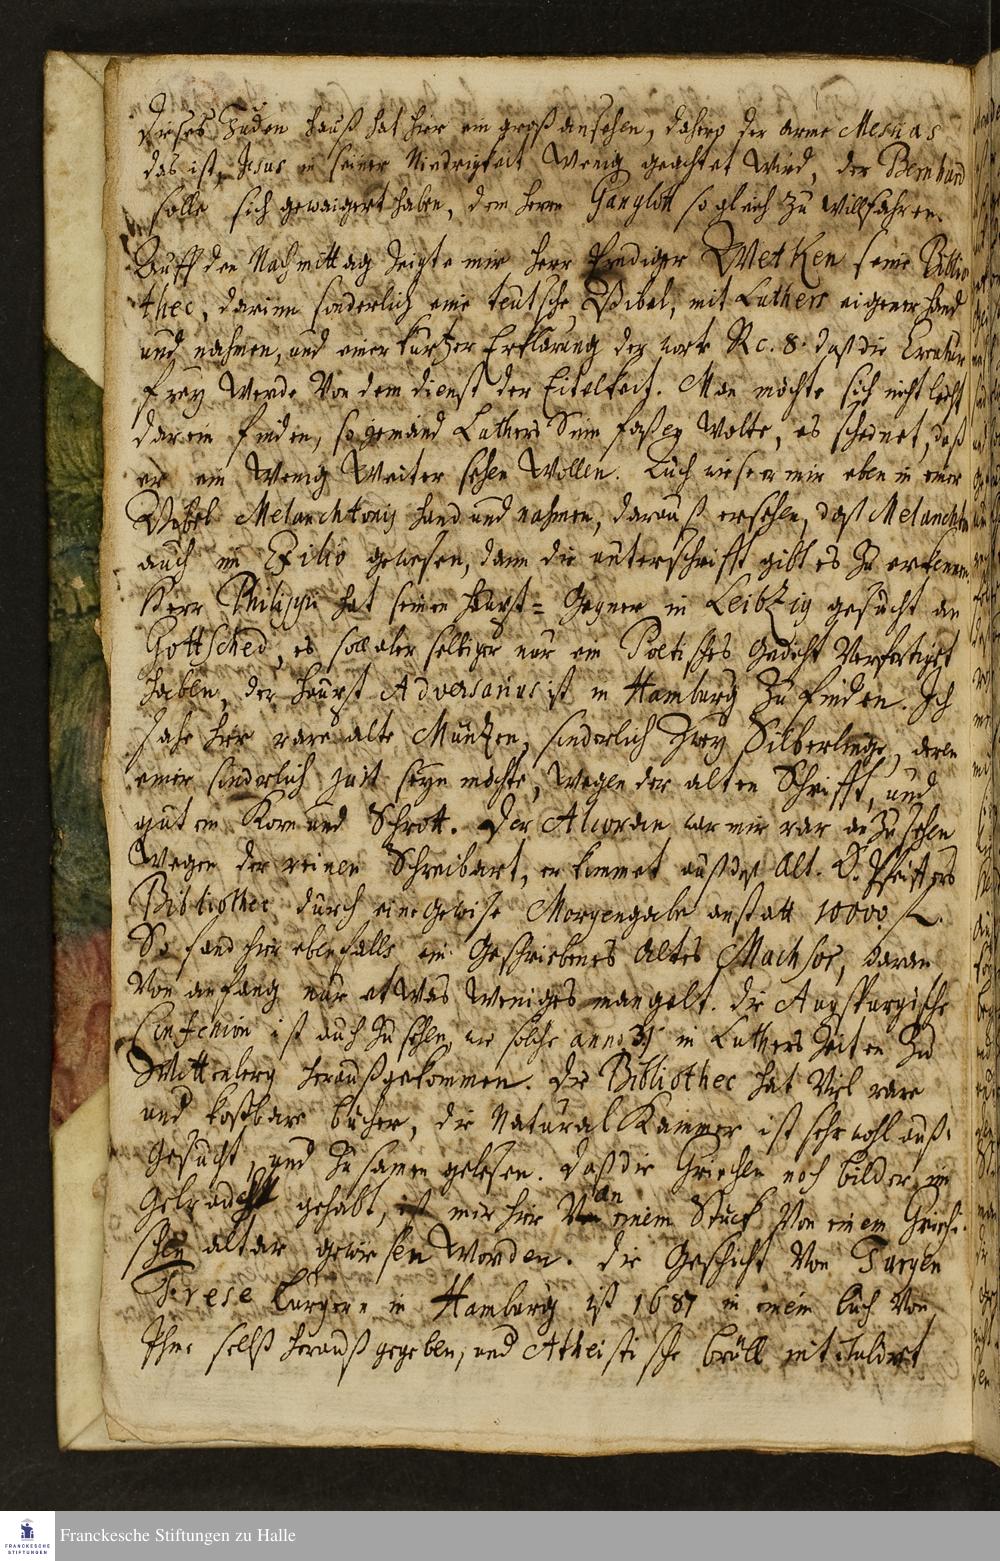 Dieses Juden Hauß hat hier ein groß ansehen, dahero der arme Messias
das ist, Jesus in seiner Niedrigkeit Wenig geachtet Wird, der Bernhard
solle sich gewaigert haben, dem Herrn Panglott so gleich zu Willfahren.
Auff den Nachmittag Zeigte mir Herr Prediger Wetken seine Biblio
thec, darinn sonderlich eine teutsche Bibel, mit Luthers eigener Hand
und nahmen, und einer kurtzer Erklärung der worte R c. 8. daß die Creatur
frey Werde Von dem dienst der Eitelkeit. Man möchte sich nicht leicht
darein finden, so jemand Luthers Sinn faßen Wolte, es scheinet, daß
er ein Wenig Weiter sehen Wollen. Auch wiese er mir eben in einer
Bibel Melanchtonis Hand und nahmen, darauß ersehen, daß Melanchton
auch im Exilio gewesen, dann die unterschrifft gibt es Zu erkennen
Herr Philippi hat seinen Haupt= Gegner in Leibzig gesucht an
Gottsched, es soll aber selbiger nur ein Poetisches Gedicht Verfertiget
haben, der Haupt Adversarius ist in Hamburg Zu finden. Ich
sahe hier rare alte Müntzen, sonderlich Zwey Silberlinge, deren
einer sonderlich just seyn möchte, Wegen der alten Schrifft, und
gutem Korn und Schrott. Der Alcoran war mir rar an Zu sehen
Wegen der reinen Schreibart, er kommet auß deß Alt. D. Pfeiffers
Bibliothec durch eine gewise Morgengabe anstatt 10000
So fand hier ebenfalls ein Geschriebenes altes Machsor, daran
Von anfang nur etWas Weniges mangelt. Die Augspurgische
Confession ist auch Zu sehen, wie solche anno 31 in Luthers Zeiten Zu
Wittenberg heraußgekommen. Die Bibliothec hat Viel rare
und kostbare bücher, die Natural Kammer ist sehr wohl auß
Gesucht, und Zusamen gelesen. Daß die Griechen noch bilder im
Gebrauch gehabt, ist mir hier an einem Stück Von einem Griechi
schen altar gewiesen Worden. Die Geschicht Von Jurgen
Frese burgern in Hamburg ist 1687 in einem buch Von
Ihme selbst herauß gegeben, und Atheistische brüll mit